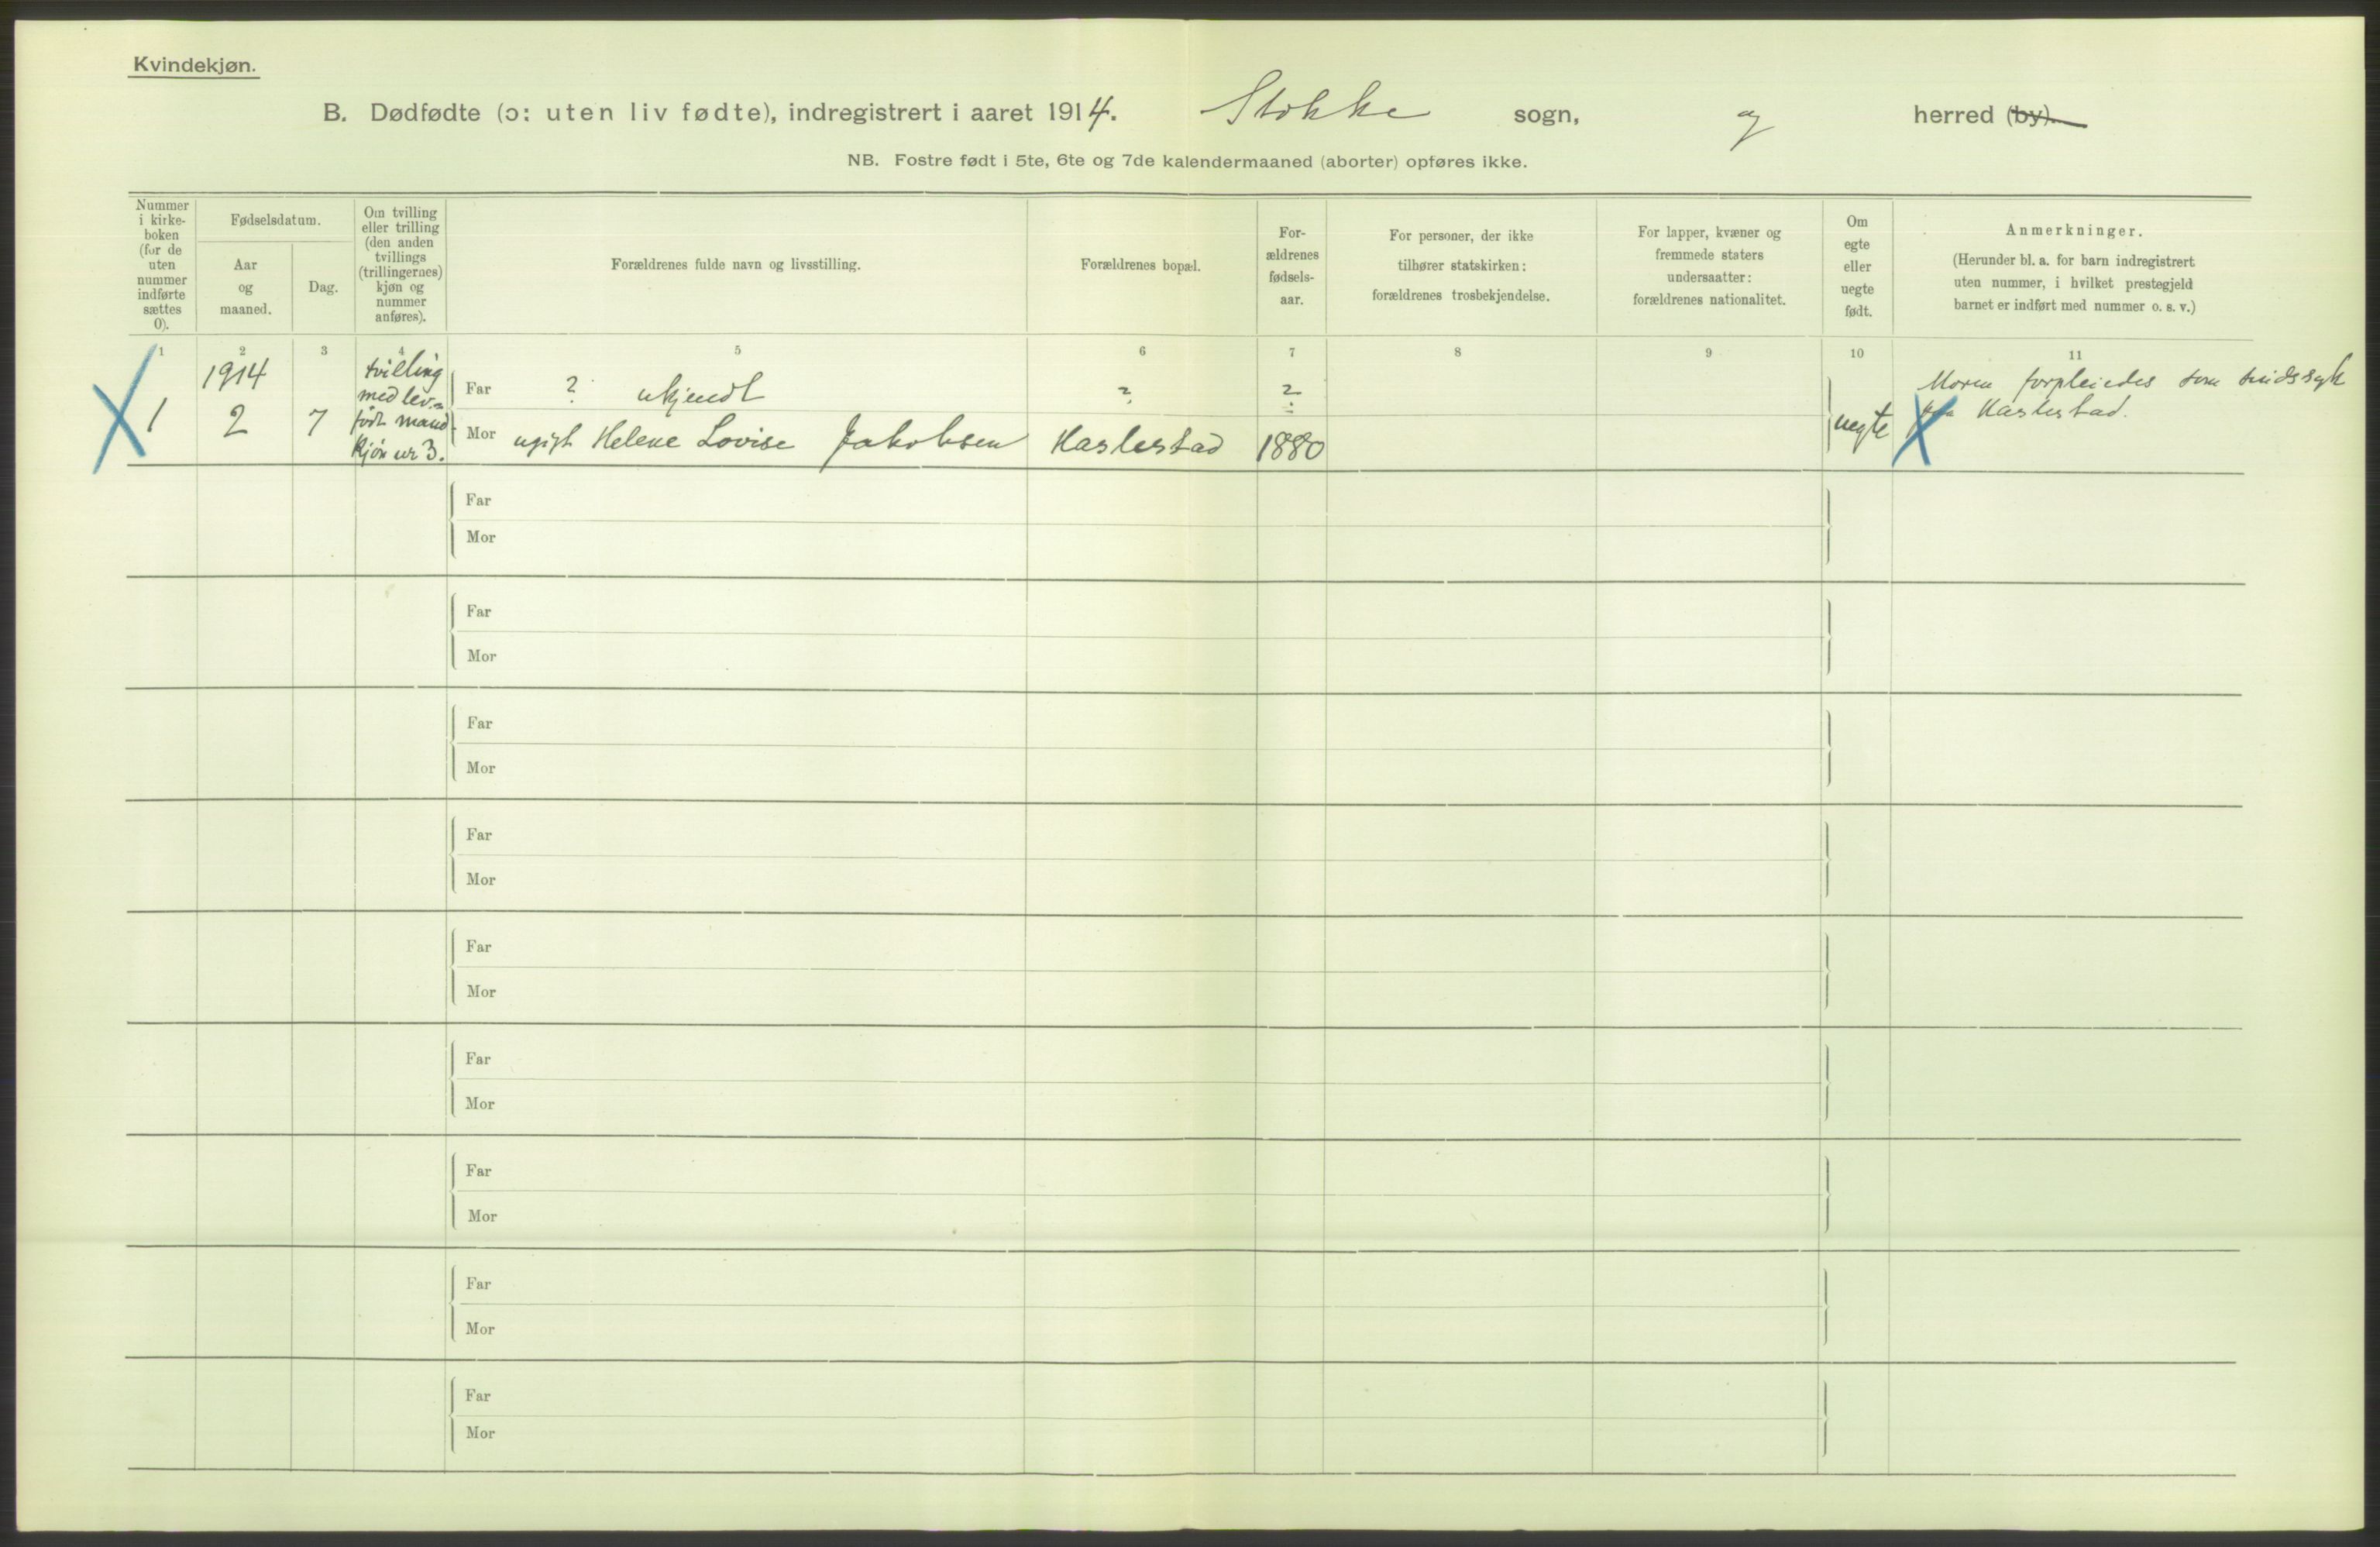 Kvindekjøn.
B. Dødfødte (ɔ: uten liv fødte), indregistrert i aaret 1914. Stokke sogn, og herred (by).
NB. Fostre født i 5te, 6te og 7de kalendermaaned (aborter) opføres ikke.
Nummer
i kirke-
boken
(for de
uten
nummer
indførte
sættes
0).
Fødselsdatum.
Aar
og
maaned.
Dag.
Om tvilling
eller trilling
(den anden
tvillings
(trillingernes)
kjøn og
nummer
anføres).
Forældrenes fulde navn og livsstilling.
Forældrenes bopæl.
For-
ældrenes
fødsels-
aar.
For personer, der ikke
tilhører statskirken:
forældrenes trosbekjendelse.
For lapper, kvæner og
fremmede staters
undersaatter:
forældrenes nationalitet.
Om
egte
eller
uegte
født.
Anmerkninger.
(Herunder bl. a. for barn indregistrert
uten nummer, i hvilket prestegjeld
barnet er indført med nummer o. s. v.)
1 2 3 4 5 6 7 8 9 10 11
1
1914
2
7
tvilling
med lev.
født mand
kjøn nr 3.
Far ? ukjendt ? ?
Mor ugift Helene Lovise Jakobsen Haslestad 1880
uegte
Moren forpleiedes som sindssyk
paa Haslestad.
Far
Mor
Far
Mor
Far
Mor
Far
Mor
Far
Mor
Far
Mor
Far
Mor
Far
Mor
Far
Mor